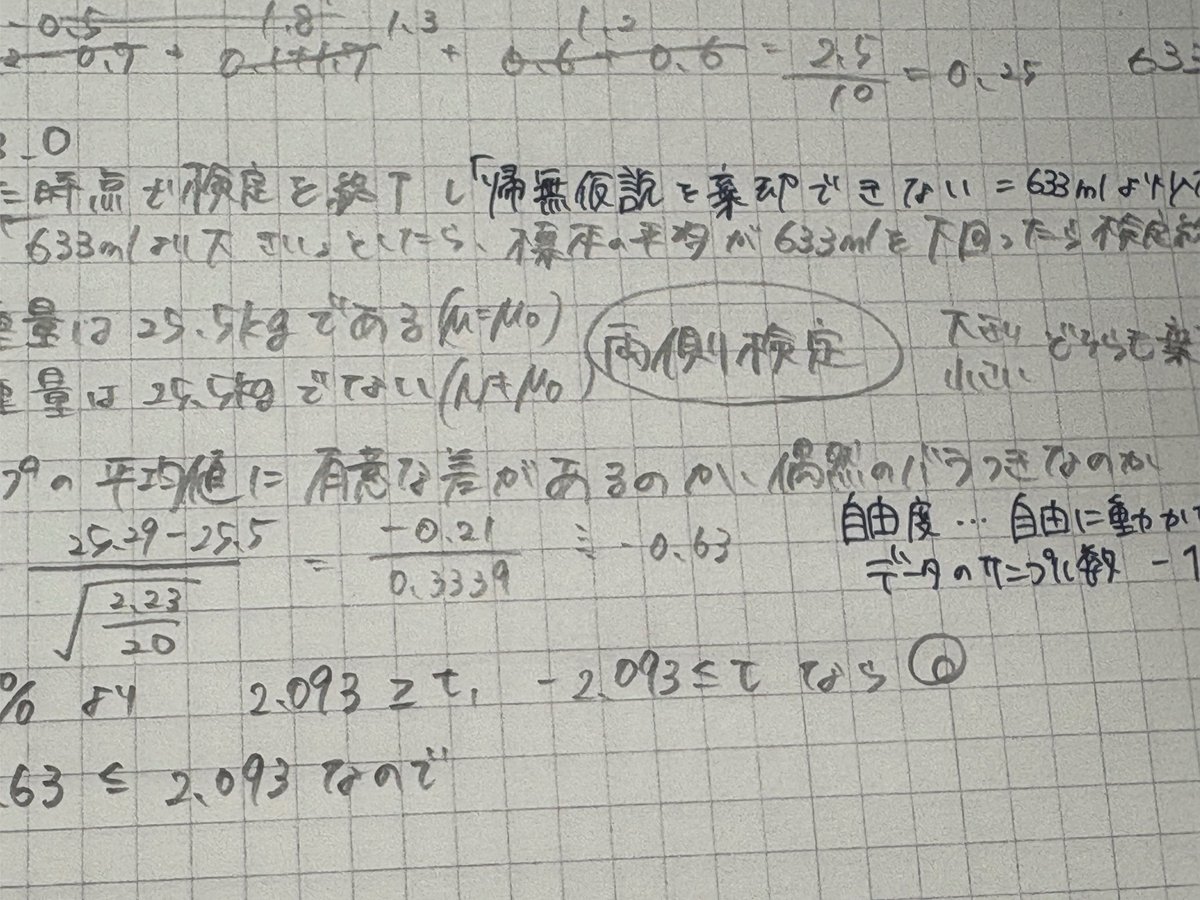 -0.5 1.8 1.3 1.2
0.7 + 0.1+1.7 + 0.6+0.6 = 2.5/10 = 0.25 633
3_0
時点で検定を終了し「帰無仮説を棄却できない = 633mlより
「633mlより大きい」としたら、標本の平均が633mlを下回ったら検定
重量は25.5kgである(μ=μ0) 両側検定 大きい どちらも棄
重量は25.5kgでない(μ≠μ0 小さい
の平均値に有意な差があるのか、偶然のバラつきなのか
25.29-25.5/√(2.23/20) = -0.21/0.3339 ≒ -0.63
自由度…自由に動か
データの 数 -1
% より 2.093≧t, -2.093≦t なら ⓪
.63 ≦ 2.093 なので